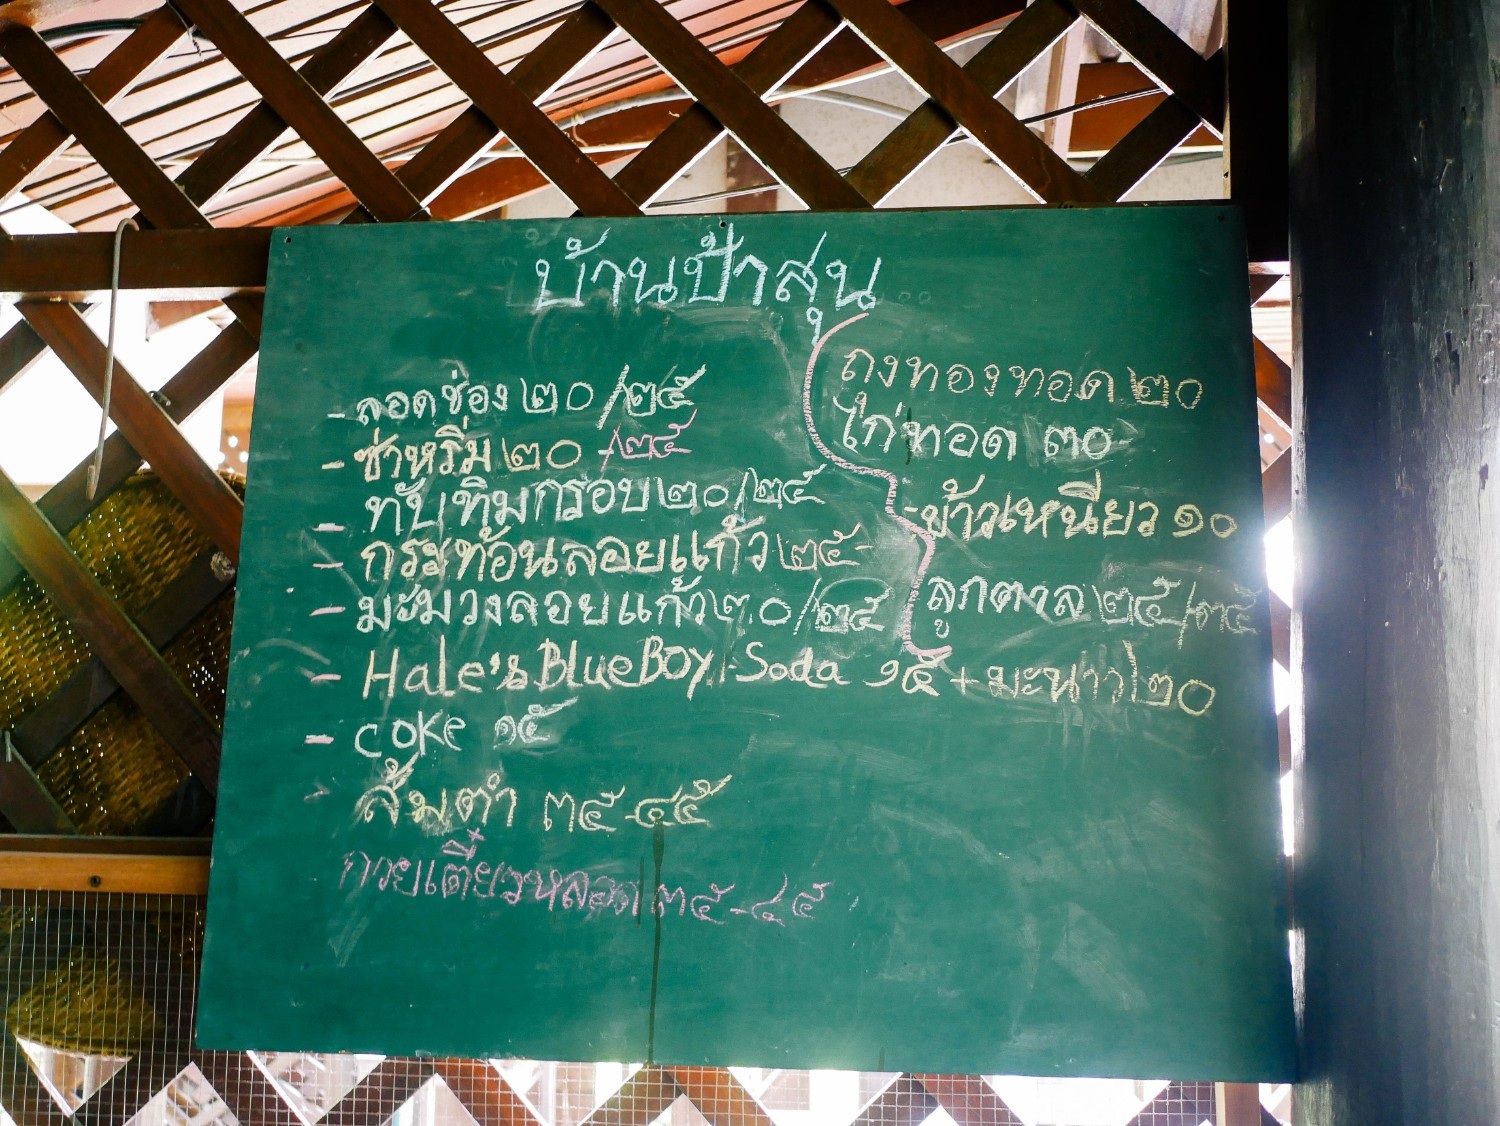 บ้านป้าสุน
- ลอดช่อง ๒๐/๒๕
- ซ่าหริ่ม ๒๐/๒๕
- ทับทิมกรอบ ๒๐/๒๕
- กระท้อนลอยแก้ว ๒๕-
- มะม่วงลอยแก้ว ๒๐/๒๕
- Hale's BlueBoy Soda ๑๕ + มะนาว ๒๐
- coke ๑๕
- ส้มตำ ๓๕-๔๕
กวยเตี๋ยวหลอด ๓๕-๔๕
ถุงทองทอด ๒๐
ไก่ทอด ๓๐-
-ข้าวเหนียว ๑๐
ลูกตาล ๒๕/๓๕